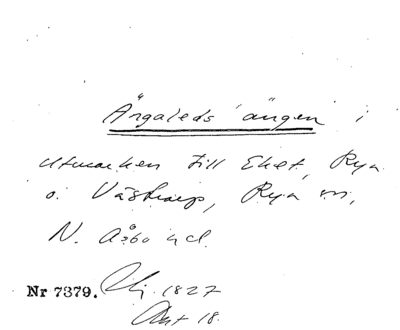 Ärgaleds ängen i
utmarken till Ehet, Rya
o. Västraup, Rya sn,
N. Åsbo hd.
Nr 7379. Lilj. 1827
Akt 18.